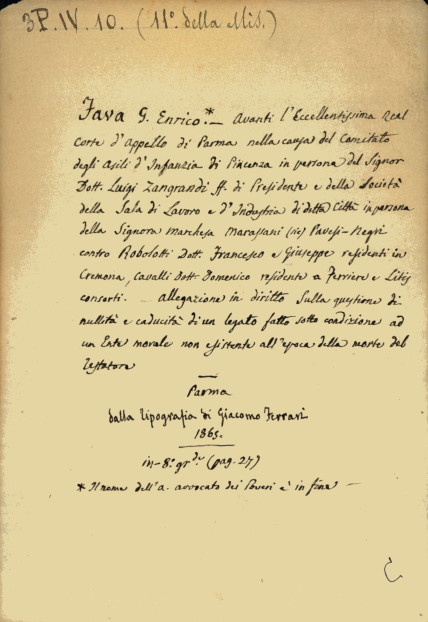 3P.IV.10. (11º. della Mis.)
Fava G. Enrico.* — Avanti l'Eccellentissima Real
Corte d'Appello di Parma nella causa del Comitato
degli Asili d'Infanzia di Piacenza in persona del Signor
Dott. Luigi Zangrandi ff. di Presidente e della Società
della Sala di Lavoro e d'Industria di detta Città in persona
della Signora Marchesa Marassani (sic) Pavesi-Negri
contro Robolotti Dott. Francesco e Giuseppe residenti in
Cremona, Cavalli Dott. Domenico residente a Ferriere e Litis
consorti. — Allegazione in diritto sulla quistione di
nullità e caducità di un legato fatto sotto condizione ad
un Ente morale non esistente all'epoca della morte del
Testatore
Parma
dalla Tipografia di Giacomo Ferrari
1865.
in-8º. gr.de (pag. 27)
* Il nome dell'a. avvocato dei Poveri è in fine —